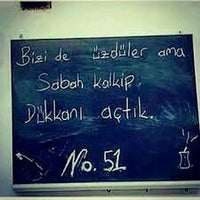 Bizi de üzdüler ama
Sabah kalkıp
Dükkanı açtık.
No. 51